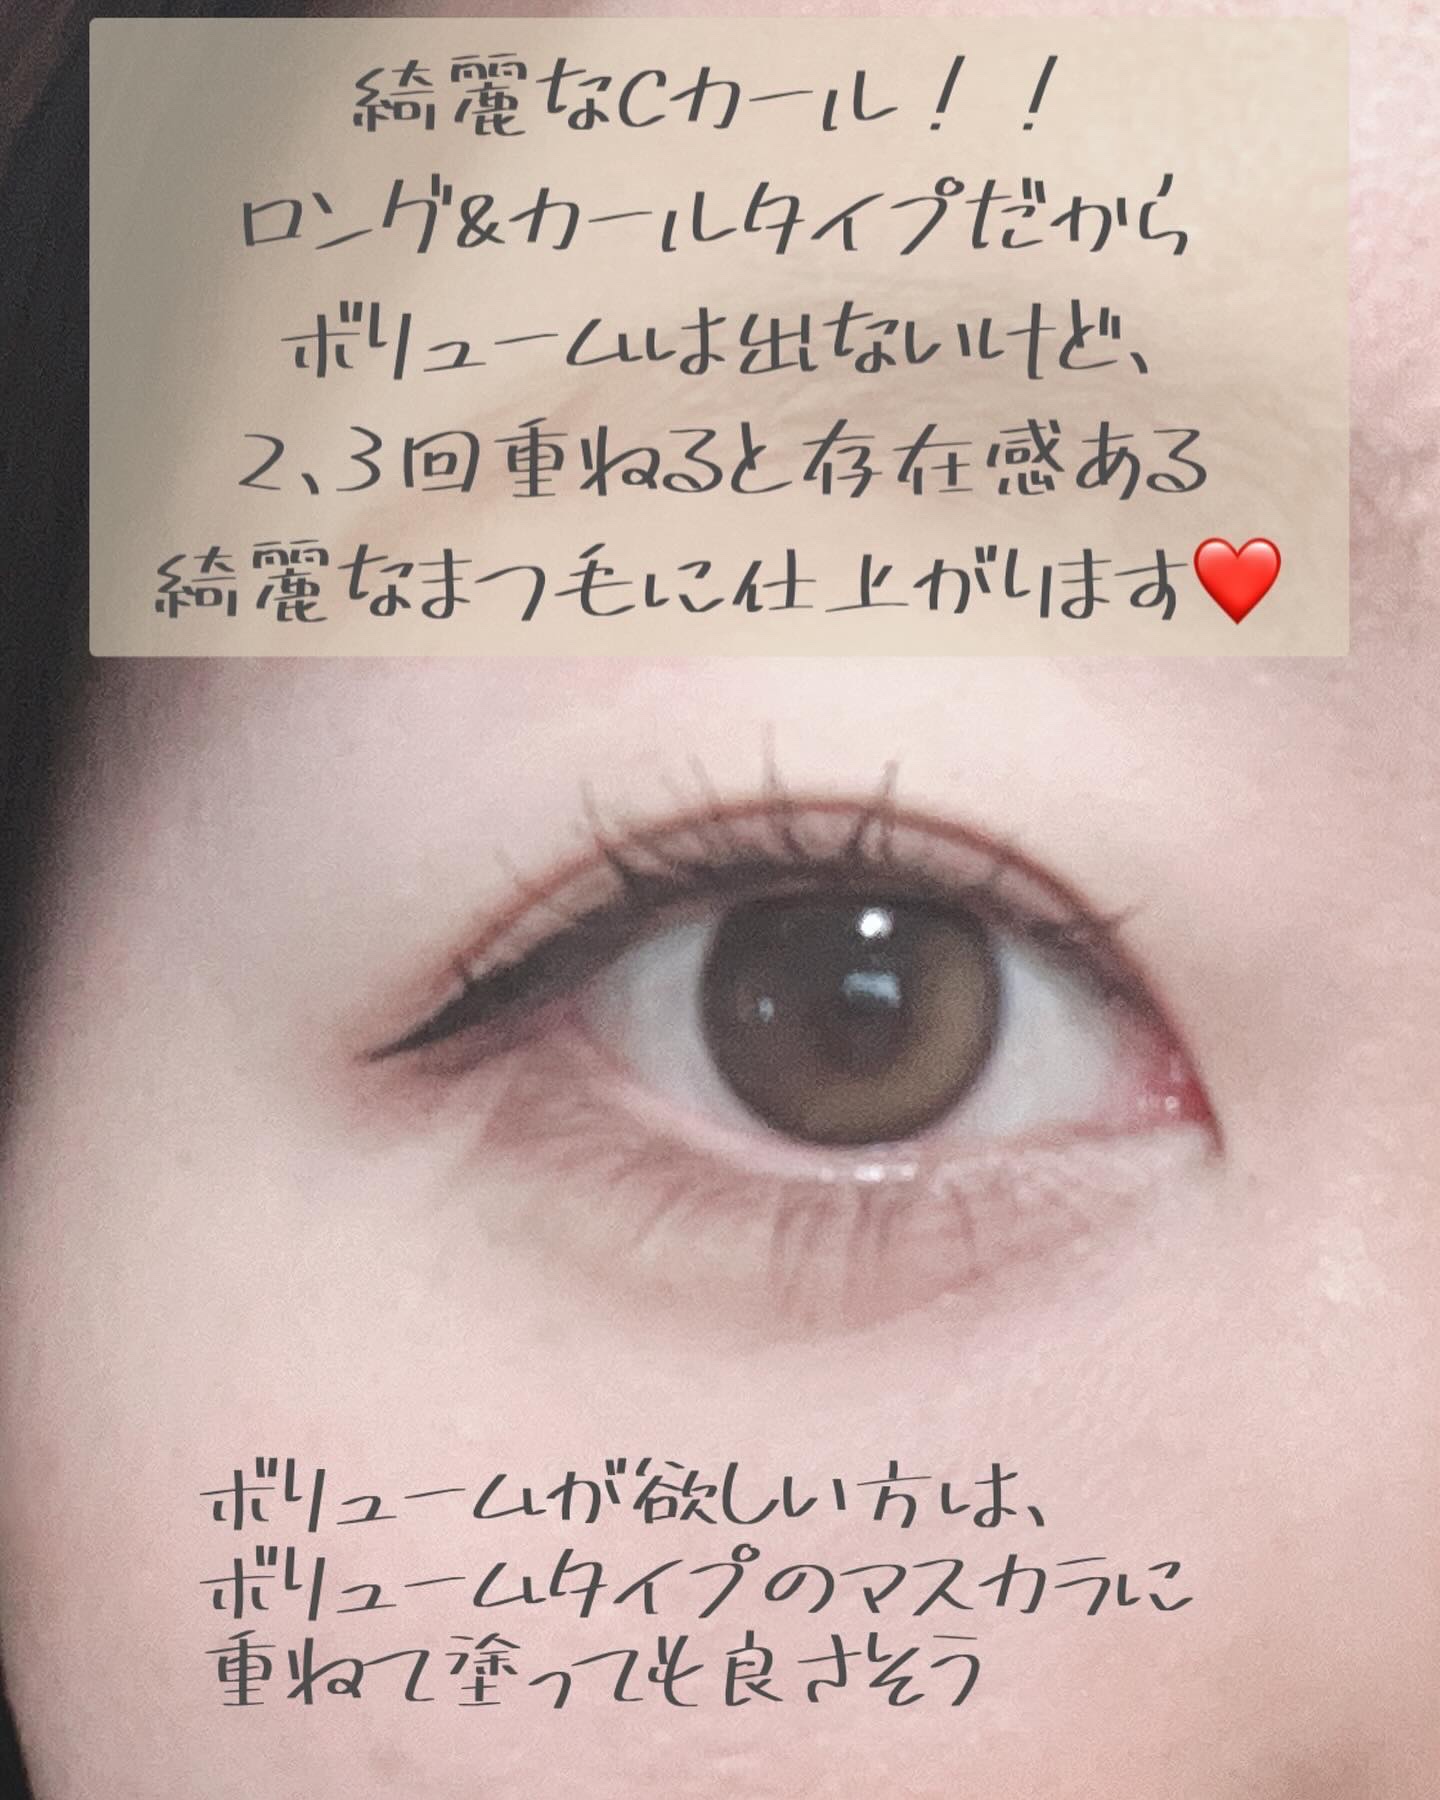 綺麗なCカール！！
ロング&カールタイプだから
ボリュームは出ないけど、
2、3回重ねると存在感ある
綺麗なまつ毛に仕上がります❤️
ボリュームが欲しい方は、
ボリュームタイプのマスカラに
重ねて塗っても良さそう